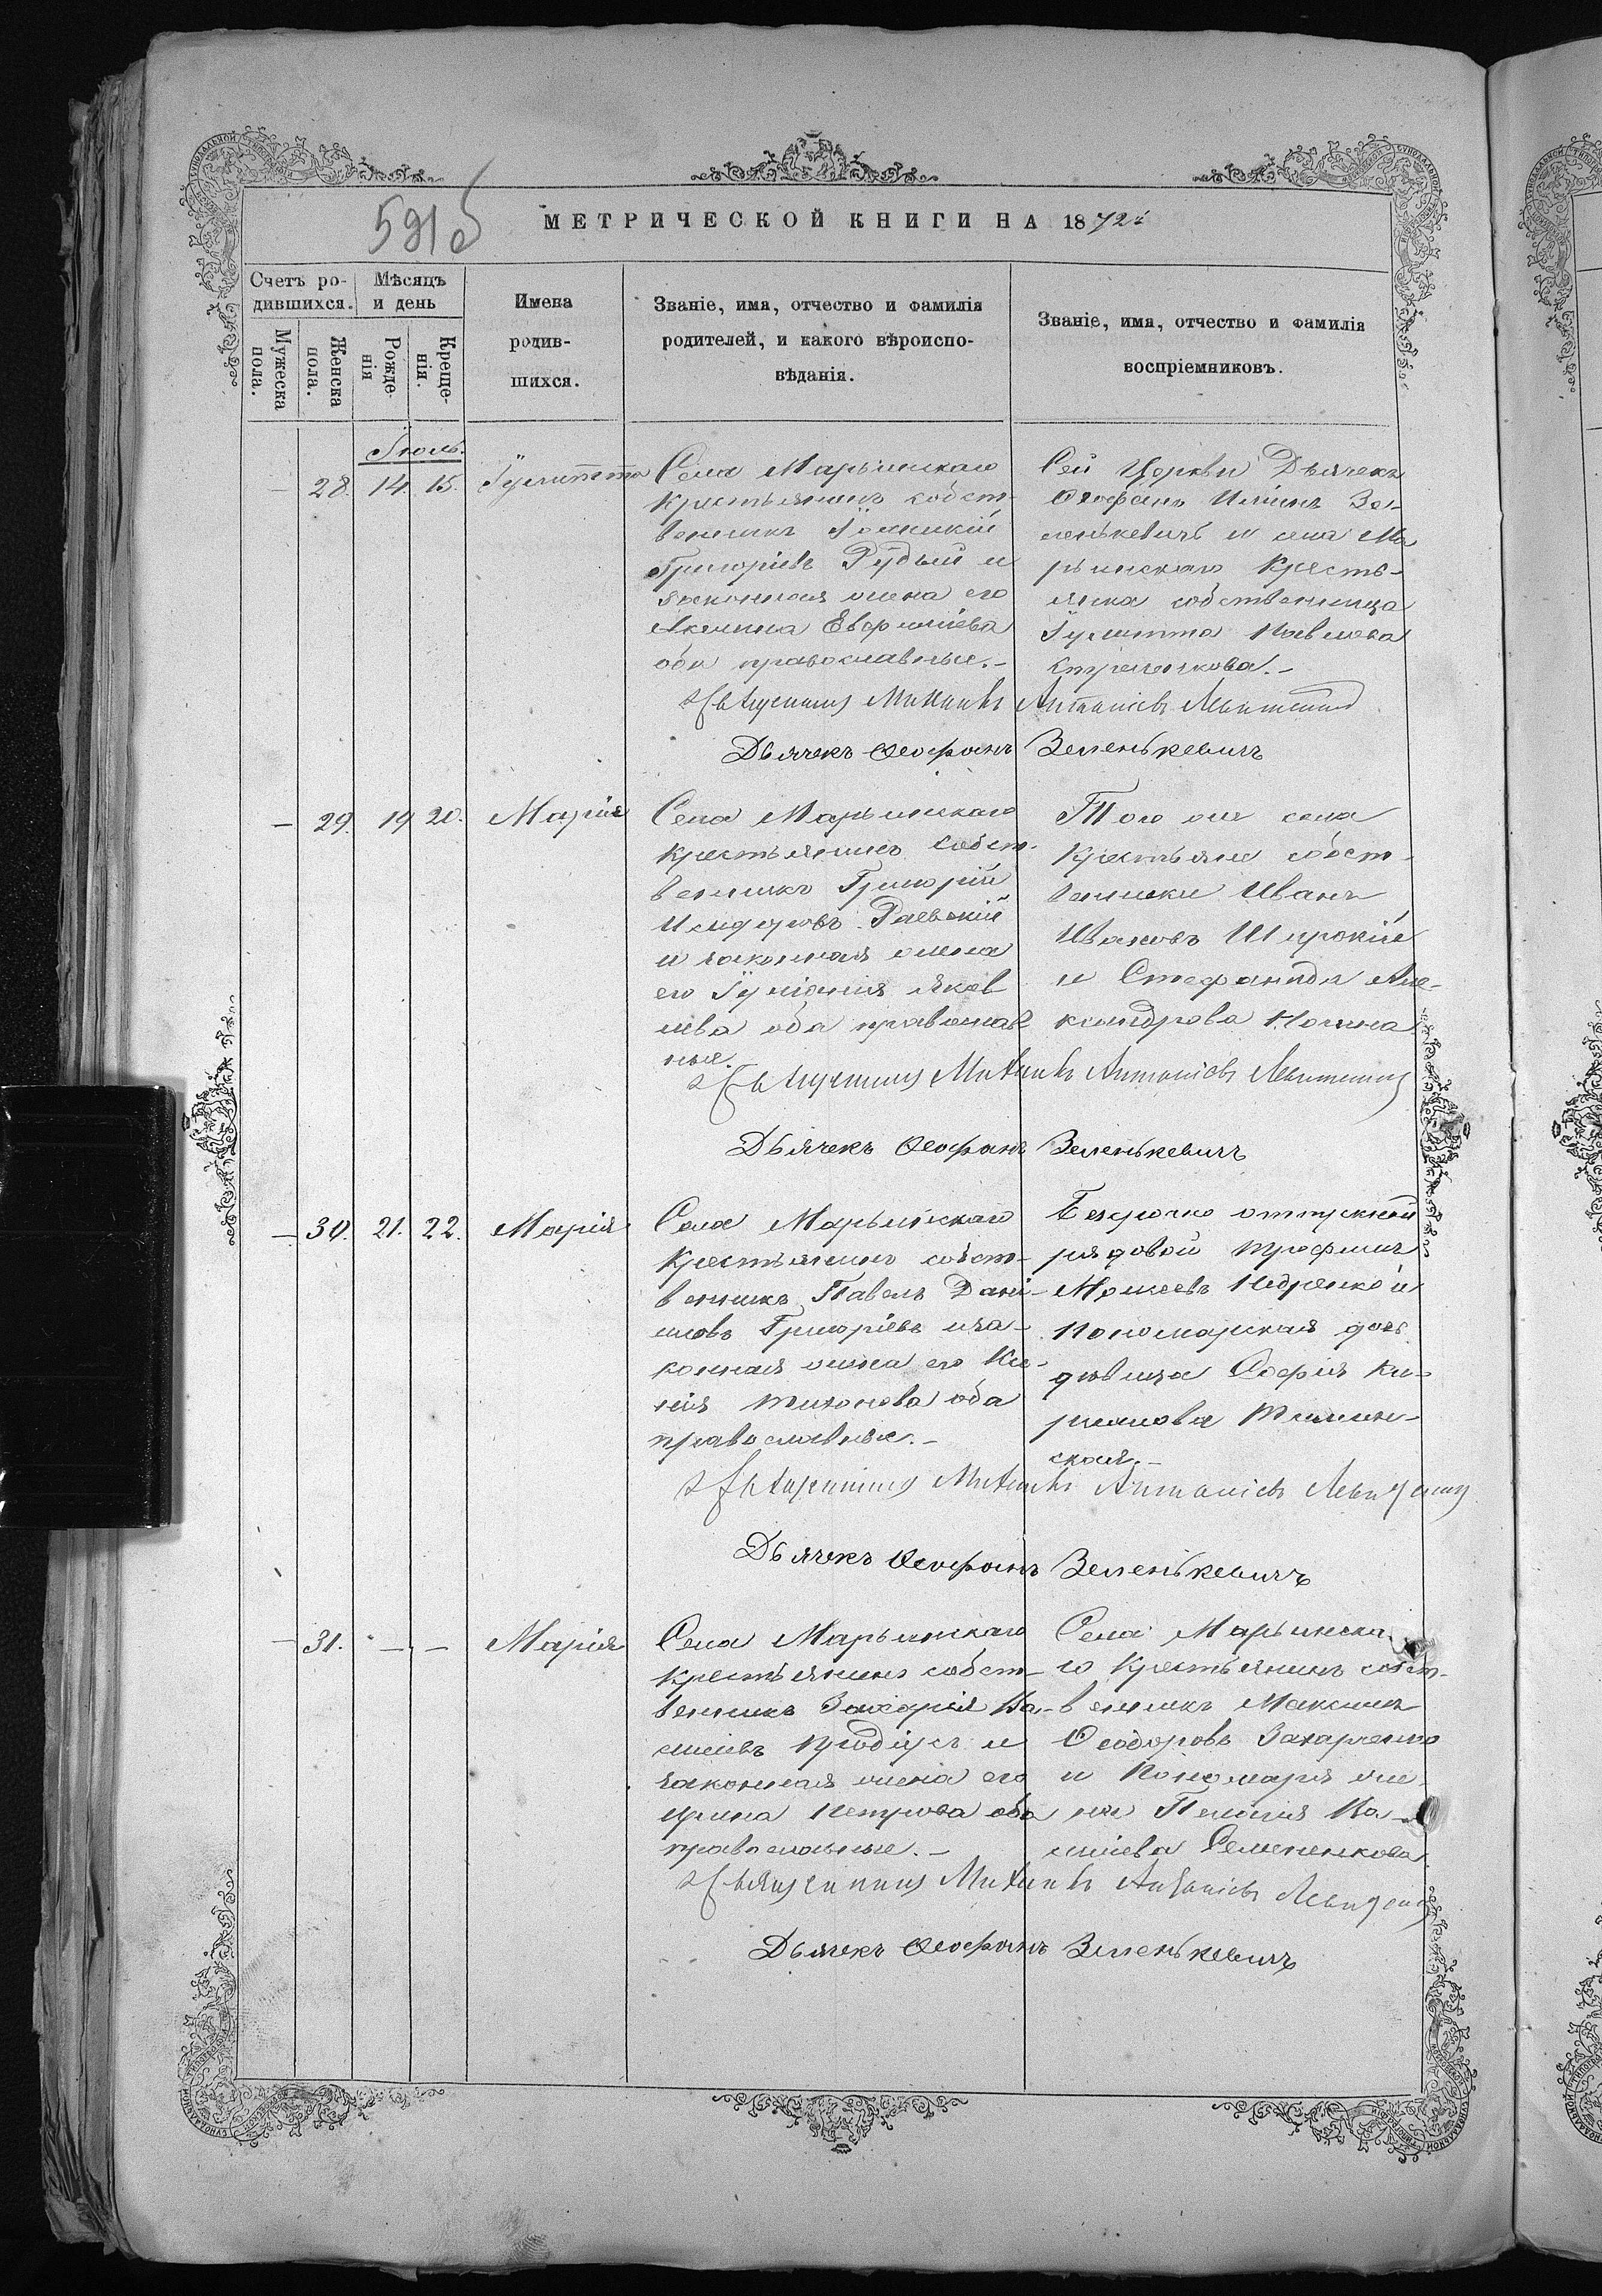 591 б
МЕТРИЧЕСКОЙ КНИГИ НА 1872й
Счетъ родившихся.
Мужеска пола.
Женска пола.
Мѣсяцъ и день
Рожденія
Крещенія.
Имена родившихся.
Званіе, имя, отчество и фамилія родителей, и какого вѣроисповѣданія.
Званіе, имя, отчество и фамилія воспріемниковъ.
Іюль.
— 28. 14. 15. Іулитта
Села Марьинскаго
крестьянинъ собст-
венникъ
Григоріевъ Рудый и
законная жена его
Акилина
оба православные.—
Сей Церкви Дьячекъ
Ѳеофанъ Ильинъ Зе-
ленькевичъ и села Ма
рьинскаго кресть-
янка собственница
Іулитта Павлова
Священникъ Михаилъ Антоніевъ
Дьячекъ Ѳеофанъ Зеленькевичъ
— 29. 19 20. Марія
Села Марьинскаго
крестьянинъ собст-
венникъ Григорій
Исидоровъ Раевскій
и законная жена
его Іуліанія Яков
лева оба православ
ные.
Того же села
крестьяне собст-
венники Иванъ
Ивановъ Широкій
и Стефанида Але-
ксандрова
Священникъ Михаилъ Антоніевъ
Дьячекъ Ѳеофанъ Зеленькевичъ
— 30. 21. 22. Марія
Села Марьинскаго
крестьянинъ собст-
венникъ Павелъ Дані-
иловъ Григорьевъ и за-
конная жена его Ксе-
нія Тихонова оба
православные.—
Безсрочно отпускной
рядовой Трофимъ
Моисеевъ
Пономарская дочь
дѣвица Софія Ки-
пріанова
ская.—
Священникъ Михаилъ Антоніевъ
Дьячекъ Ѳеофанъ Зеленькевичъ
— 31. — — Марія
Села Марьинскаго
крестьянинъ собст-
венникъ Захарія Ва-
силіевъ и
законная жена его
Ирина Петрова оба
православные.—
Села Марьинска
го крестьянинъ собст-
венникъ Максимъ
Ѳеодоровъ Захарченко
и Пономаря же
на Пелагія Ва-
силіева Семененкова
Священникъ Михаилъ Антоніевъ
Дьячекъ Ѳеофанъ Зеленькевичъ